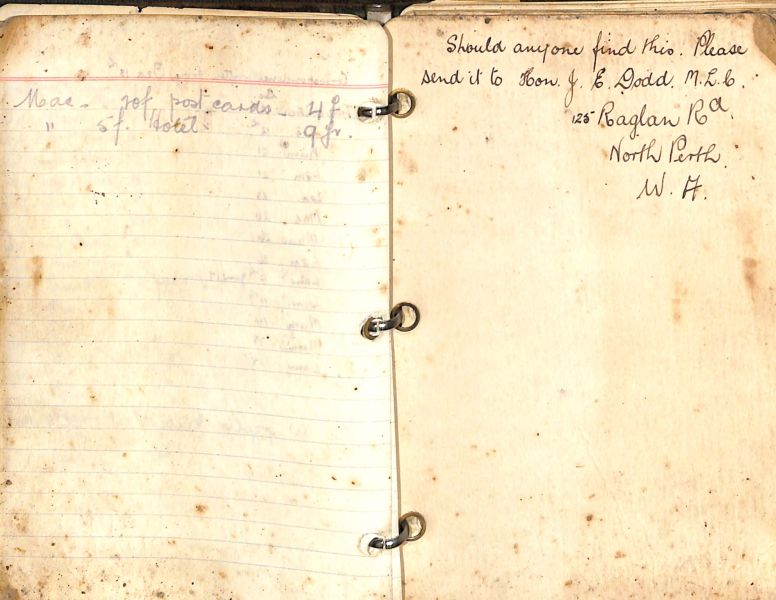 Mac - 70f. post cards 4 f.
" 5f. total 9 fr.
Should anyone find this. Please
send it to Hon. J. E. Dodd. M.L.C.
125 Raglan Rd.
North Perth.
W. A.